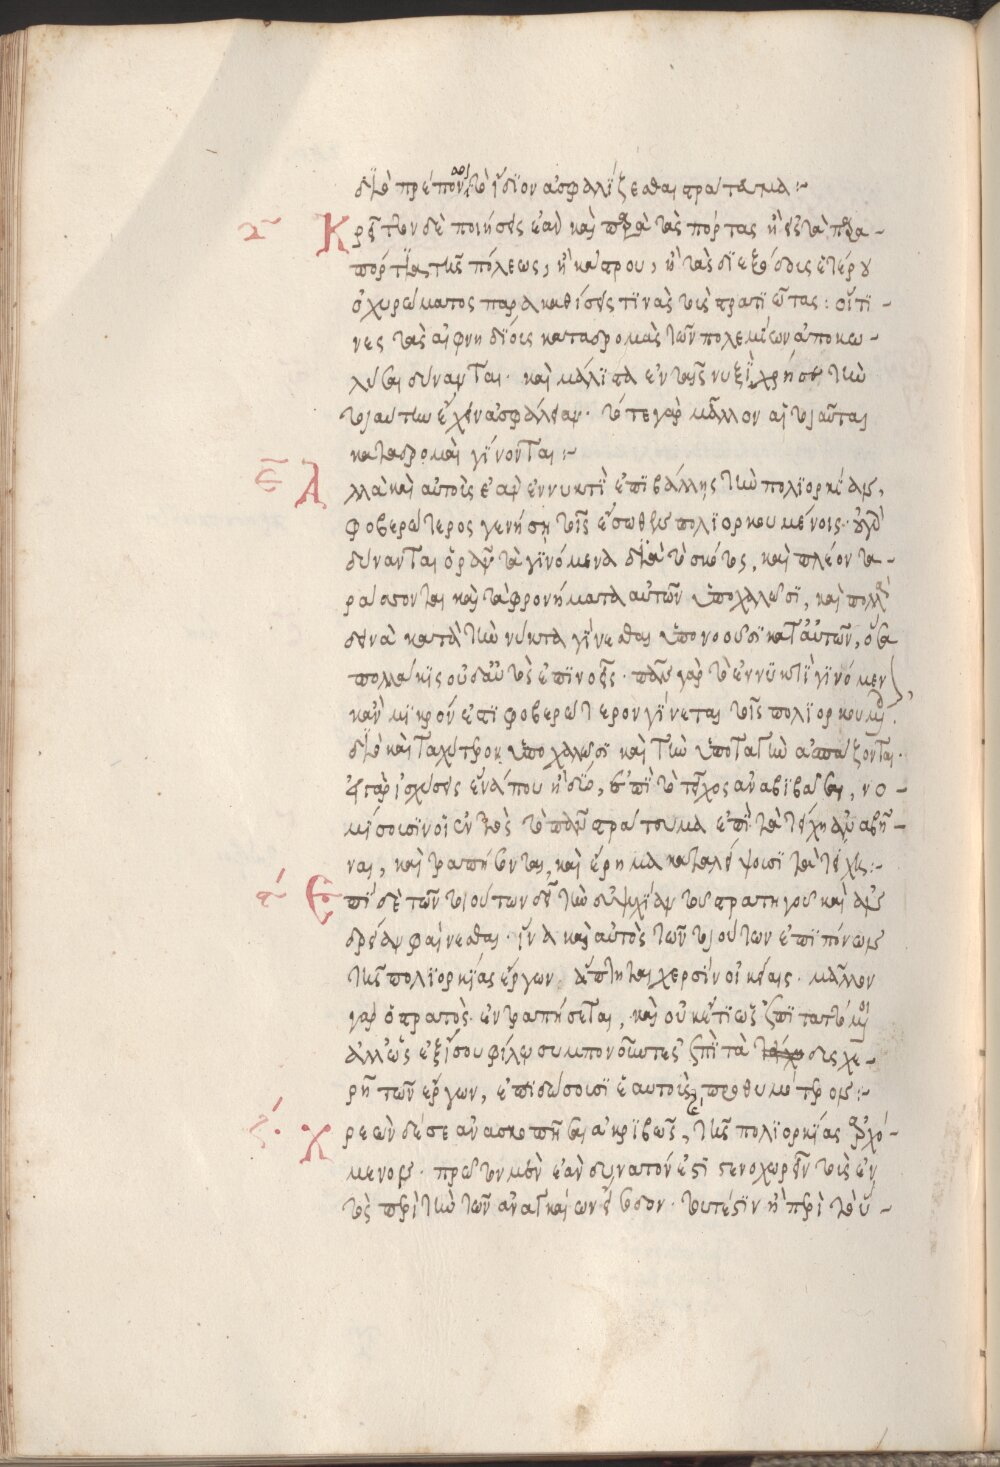 διὸ πρέπον σοι τὸ ἴδιον ἀσφαλίζεσθαι στράτευμα :-
δ Κρεῖττον δὲ ποιήσεις ἐὰν καὶ παρὰ τὰς πόρτας ἢ εἰς τὰ παρα-
πόρτια τῆς πόλεως, ἢ κάστρου, ἢ τὰς διεξόδους ἑτέρου
ὀχυρώματος παρακαθίσεις τινὰς τοὺς στρατιώτας : οἵτι-
νες τὰς αἰφνιδίοις καταδρομὰς τῶν πολεμίων ἀποκω-
λύσαι δύνανται. καὶ μάλιστα ἐν ταῖς νυξὶ χρήσει τὴν
τοιαύτην ἔχειν ἀσφάλειαν. τότε γὰρ μᾶλλον αἱ τοιαῦται
καταδρομαὶ γίνονται :-
ε Ἀλλὰ καὶ αὐτοῖς ἐὰν ἐν νυκτὶ ἐπιβάλλῃς τὴν πολιορκίαν,
φοβερώτερος γενήσῃ τοῖς ἔσωθεν πολιορκουμένοις. οὐ γὰρ
δύνανται ὁρᾶν τὰ γινόμενα διὰ τὸ σκότος, καὶ πλέον τα-
ράσσονται καὶ τὰ φρονήματα αὐτῶν ὑποχαλῶσι, καὶ πολλὰ
δεινὰ κατὰ τὴν νύκτα γίνεσθαι ὑπονοοῦσι κατ' αὐτῶν, ὅσα
πολλάκις οὐδ' αὐτὸς ἐπινοεῖς. πᾶν γὰρ τὸ ἐν νυκτὶ γινόμενον
κἂν μικρόν ἐστι φοβερώτερον γίνεται τοῖς πολιορκουμένοις.
διὸ καὶ ταχύτερον ὑποχαλῶσι καὶ τὴν ὑποταγὴν ἀσπάζονται.
ἐὰν γὰρ ἰσχύσεις ἕνα που ἢ δύο, ἐπὶ τὸ τεῖχος ἀναβιβάσαι, νο-
μίσουσιν οἱ ἐντὸς τὸ πᾶν στράτευμα ἐπὶ τὰ τείχη ἀναβῆ-
ναι, καὶ τραπήσονται, καὶ ἔρημα καταλείψουσι τὰ τείχη :-
ϛ Ἐπὶ δὲ τῶν τοιούτων δεῖ τὴν εὐψυχίαν τοῦ στρατηγοῦ καὶ ἀν-
δρείαν φαίνεσθαι. ἵνα καὶ αὐτὸς τῶν τοιούτων ἐπιπόνων
τῆς πολιορκίας ἔργων ἅπτηται χερσὶν οἰκείαις. μᾶλλον
γὰρ ὁ στρατὸς ἐντραπήσεται, καὶ οὐκέτι ὡς ἐπιταττόμενοι
ἀλλ' ὡς ἐξ ἴσου φίλῳ συμπονοῦντες ἐπὶ τὰ δυσχε-
ρῆ τῶν ἔργων, ἐπιδώσουσι ἑαυτοὺς προθυμότερον :-
ζ Χρεὼν δέ σε ἀνασκοπῆσαι ἀκριβῶς, τῆς πολιορκίας ἀρχό-
μενον. πρῶτον μὲν ἐὰν δυνατόν ἐστι στενοχωρεῖν τοὺς ἐν-
τὸς περὶ τὴν τῶν ἀναγκαίων εἴσοδον. τουτέστιν ἢ περὶ τοῦ ὕ-